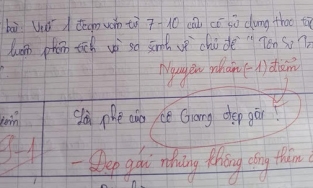 bài: Viết 1 đoạn văn từ 7-10 câu có sử dụng thao tác
luận phân tích và so sánh về chủ đề "Tôn Sư Tr
Nguyên nhân (-1) điểm
Lời phê của cô Giang đẹp gái!
- Đẹp gái nhưng không cộng thêm